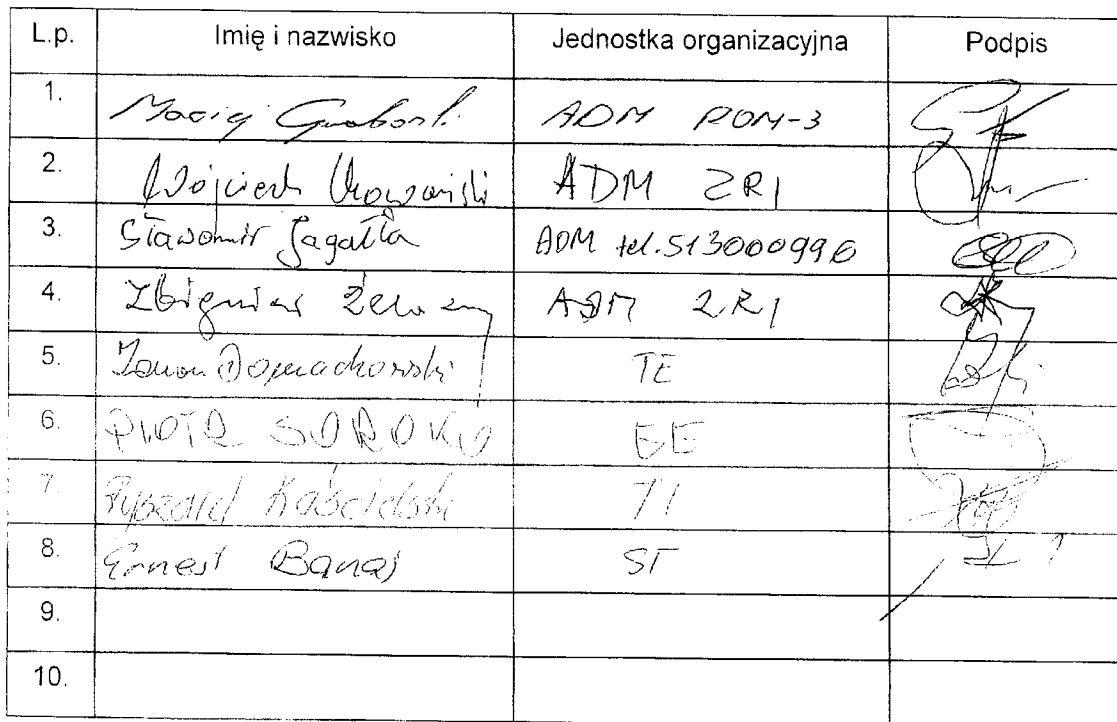 L.p. Imię i nazwisko Jednostka organizacyjna Podpis
1. Maciej ADM POM-3
2. Wojciech ADM ZR1
3. Sławomir Jagałła ADM tel. 513000996
4. Zbigniew Żelazny ADM ZR1
5. Domachowski TE
6. PIOTR SOROKO EE
7. Ryszard Kościelski TI
8. Ernest Banaś ST
9.
10.